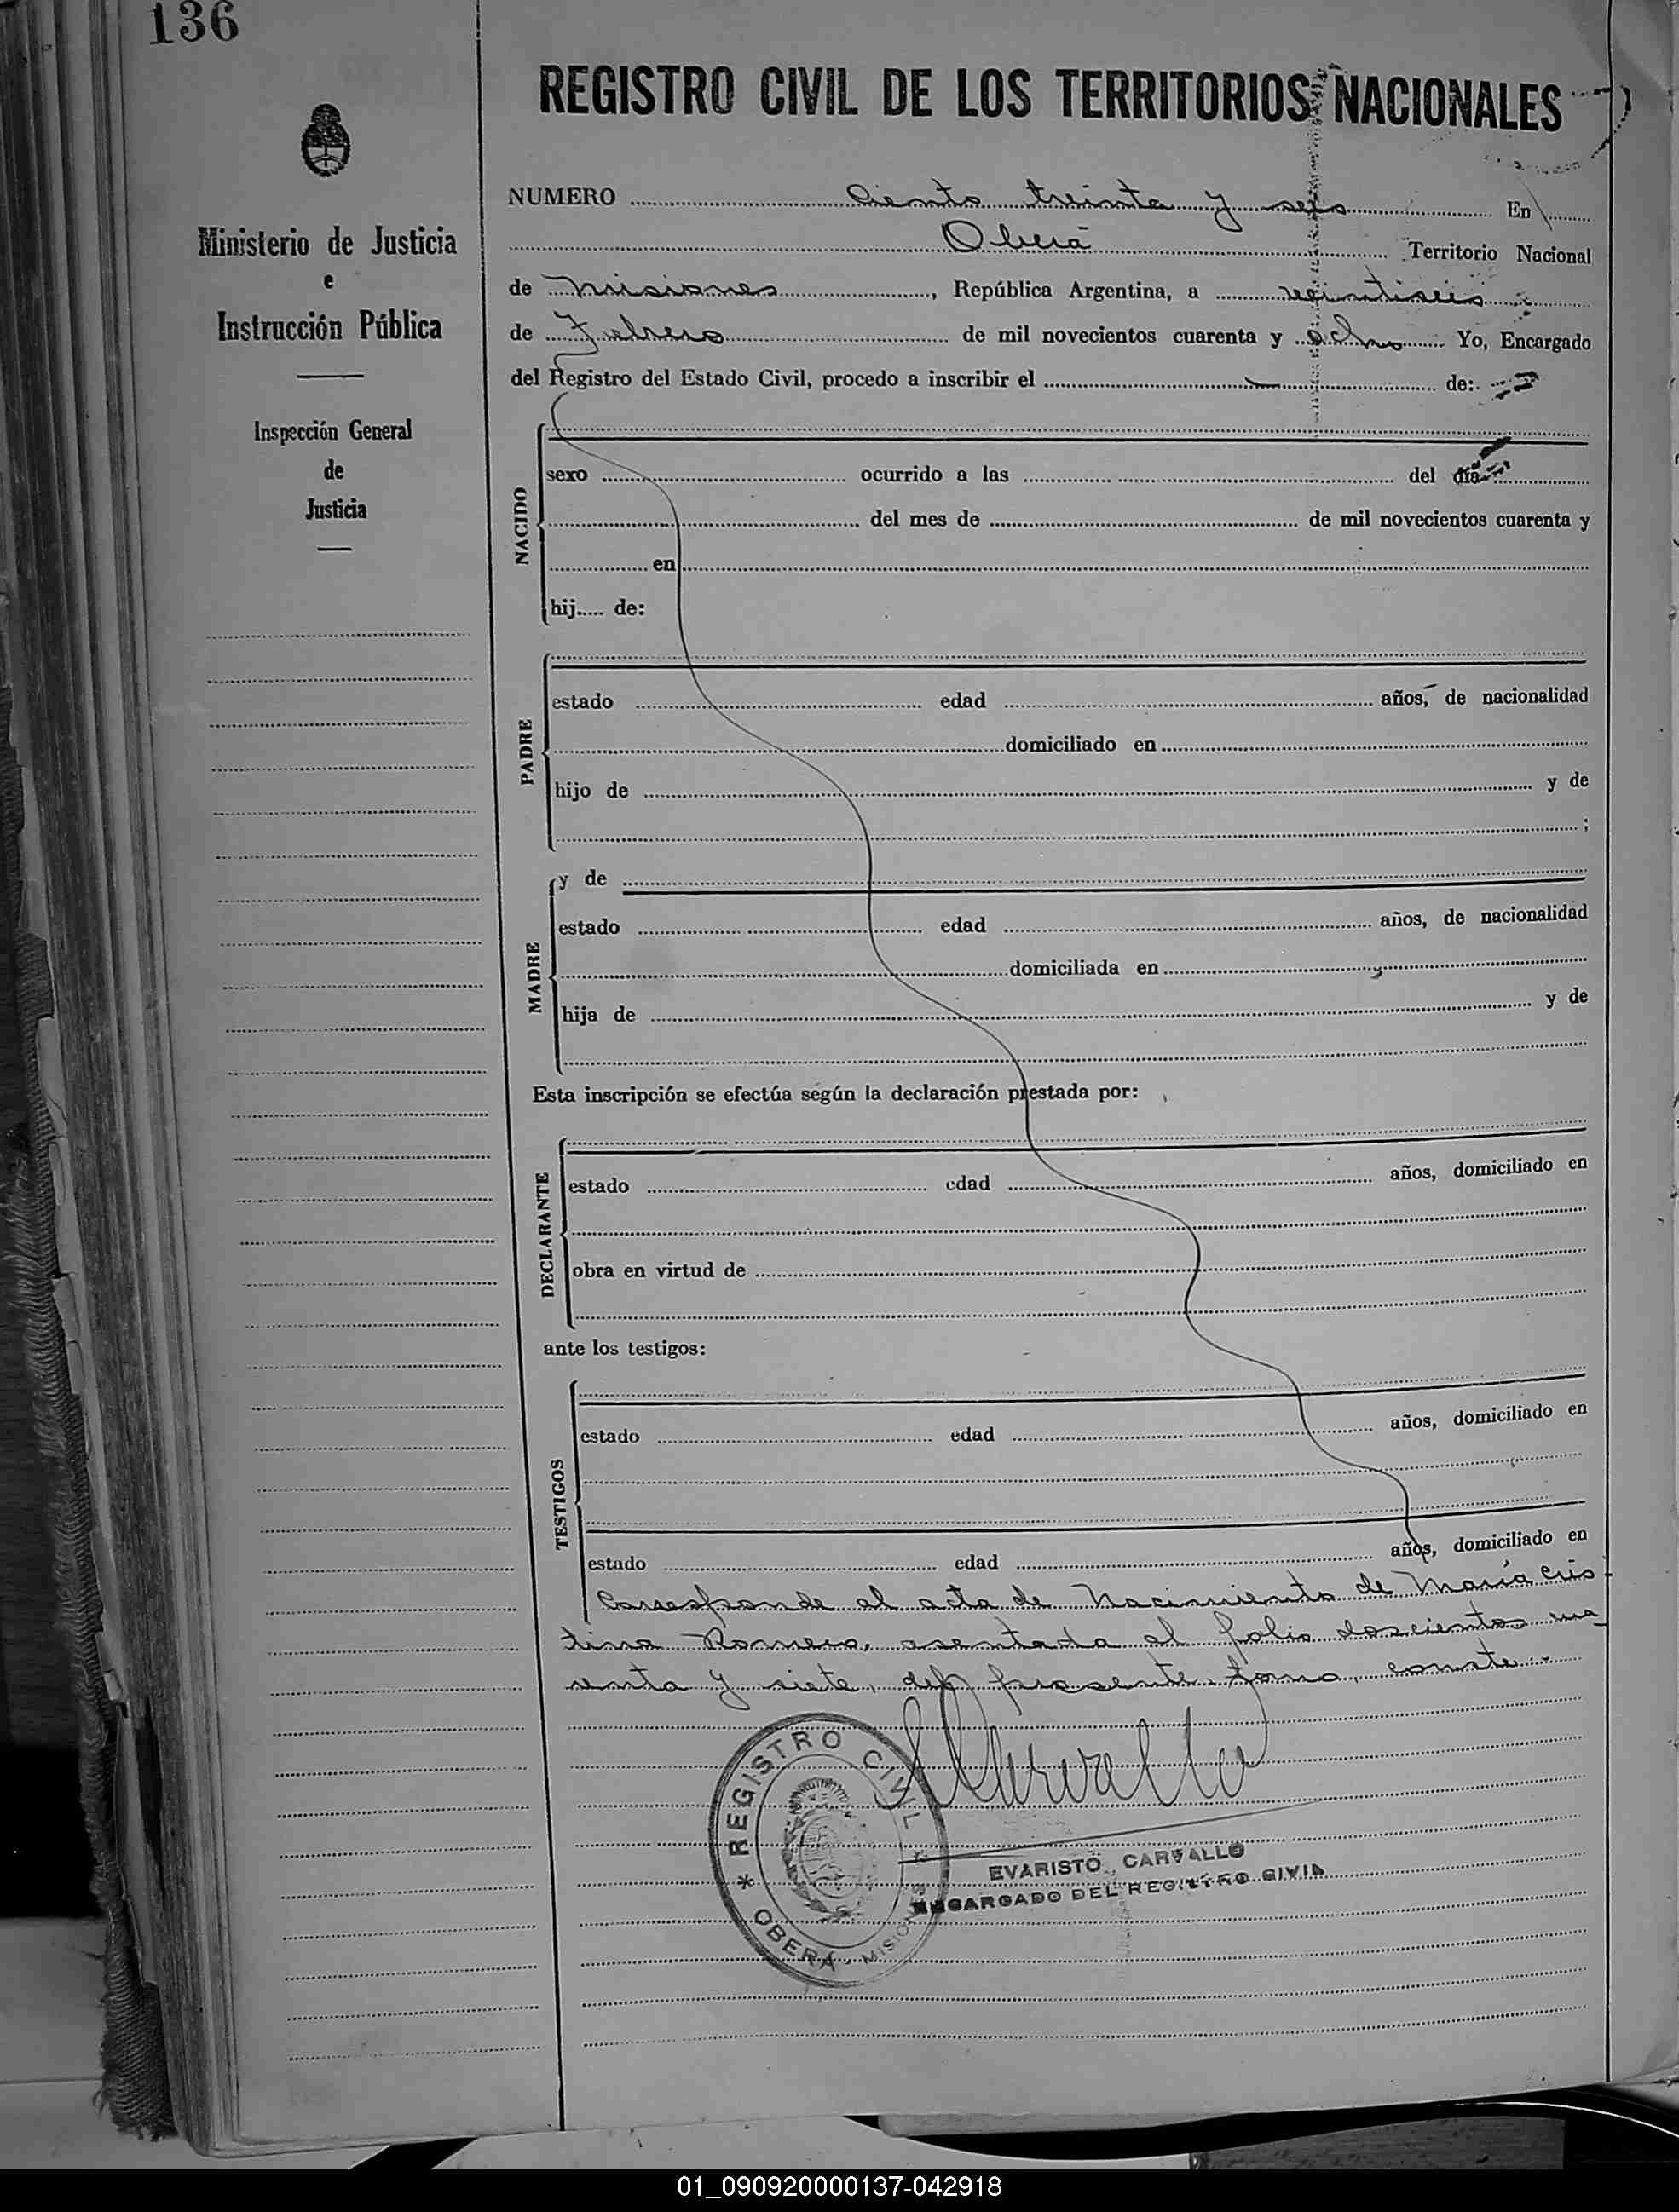 136
Ministerio de Justicia
e
Instrucción Pública
Inspección General
de
Justicia
REGISTRO CIVIL DE LOS TERRITORIOS NACIONALES
NUMERO Ciento treinta y seis En
Oberá Territorio Nacional
de Misiones, República Argentina, a veintiseis
de Febrero de mil novecientos cuarenta y ocho Yo, Encargado
del Registro del Estado Civil, procedo a inscribir el de:
NACIDO
sexo ocurrido a las del día
del mes de de mil novecientos cuarenta y
en
hij..... de:
PADRE
estado edad años, de nacionalidad
domiciliado en
hijo de y de
;
MADRE
y de
estado edad años, de nacionalidad
domiciliada en
hija de y de
Esta inscripción se efectúa según la declaración prestada por:
DECLARANTE
estado edad años, domiciliado en
obra en virtud de
ante los testigos:
TESTIGOS
estado edad años, domiciliado en
estado edad años, domiciliado en
Corresponde al acta de Nacimiento de María Cris
tina Romero, asentada al folio doscientos
y siete, del presente tomo, conste.-
REGISTRO CIVIL
* OBERÁ MISIONES
EVARISTO CARVALLO
ENCARGADO DEL REGISTRO CIVIL
01_090920000137-042918